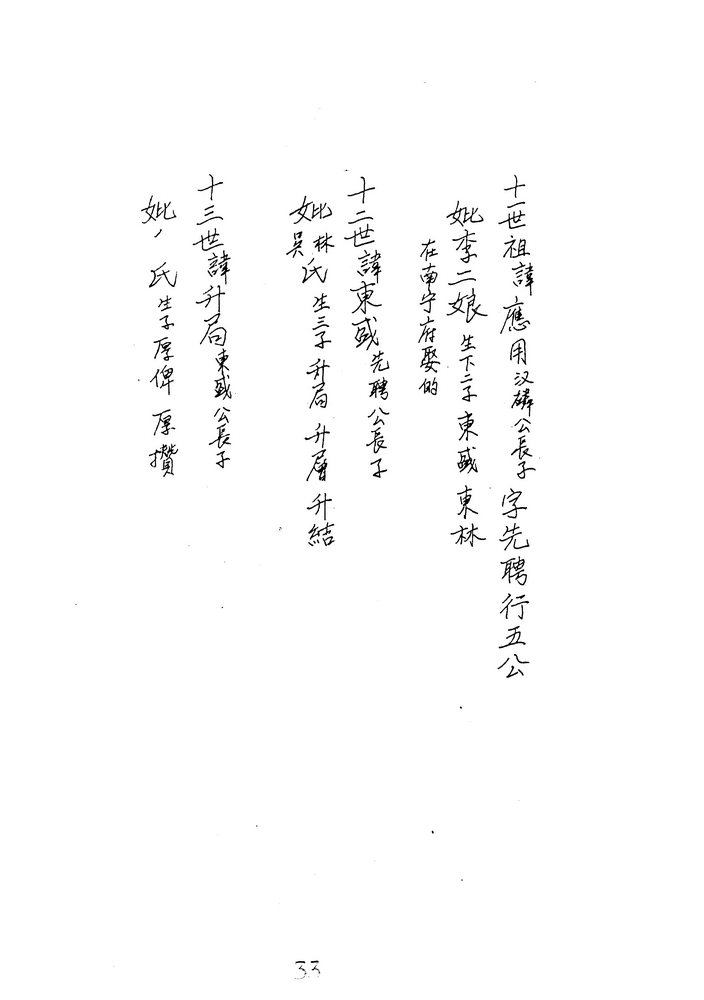 十一世祖諱應用汉磷公長子字先聘行五公
妣李二娘生下二子東盛東林
在南宁府娶的
十二世諱東盛先聘公長子
妣林吳氏生三子升局升層升結
十三世諱升局東盛公長子
妣氏生子厚俾厚攢
33